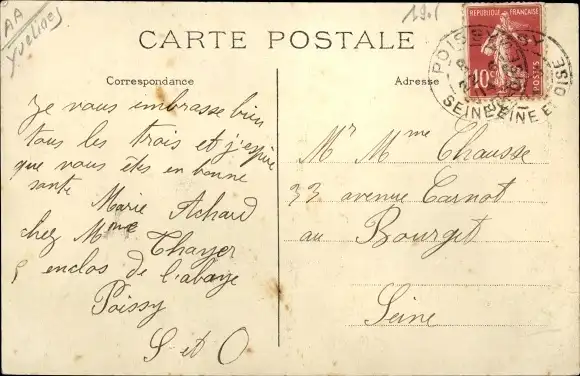 AA
Yvelines
CARTE POSTALE
Correspondance
Je vous embrasse bien
tous les trois et j'espère
que vous êtes en bonne
santé
Marie Achard
chez Mme Thayer
5 enclos de l'abbaye
Poissy
S et O
Adresse
RÉPUBLIQUE FRANÇAISE
10c
POSTES
POISSY
SEINE ET OISE
Mr Mme Chausse
33 avenue Carnot
au Bourget
Seine